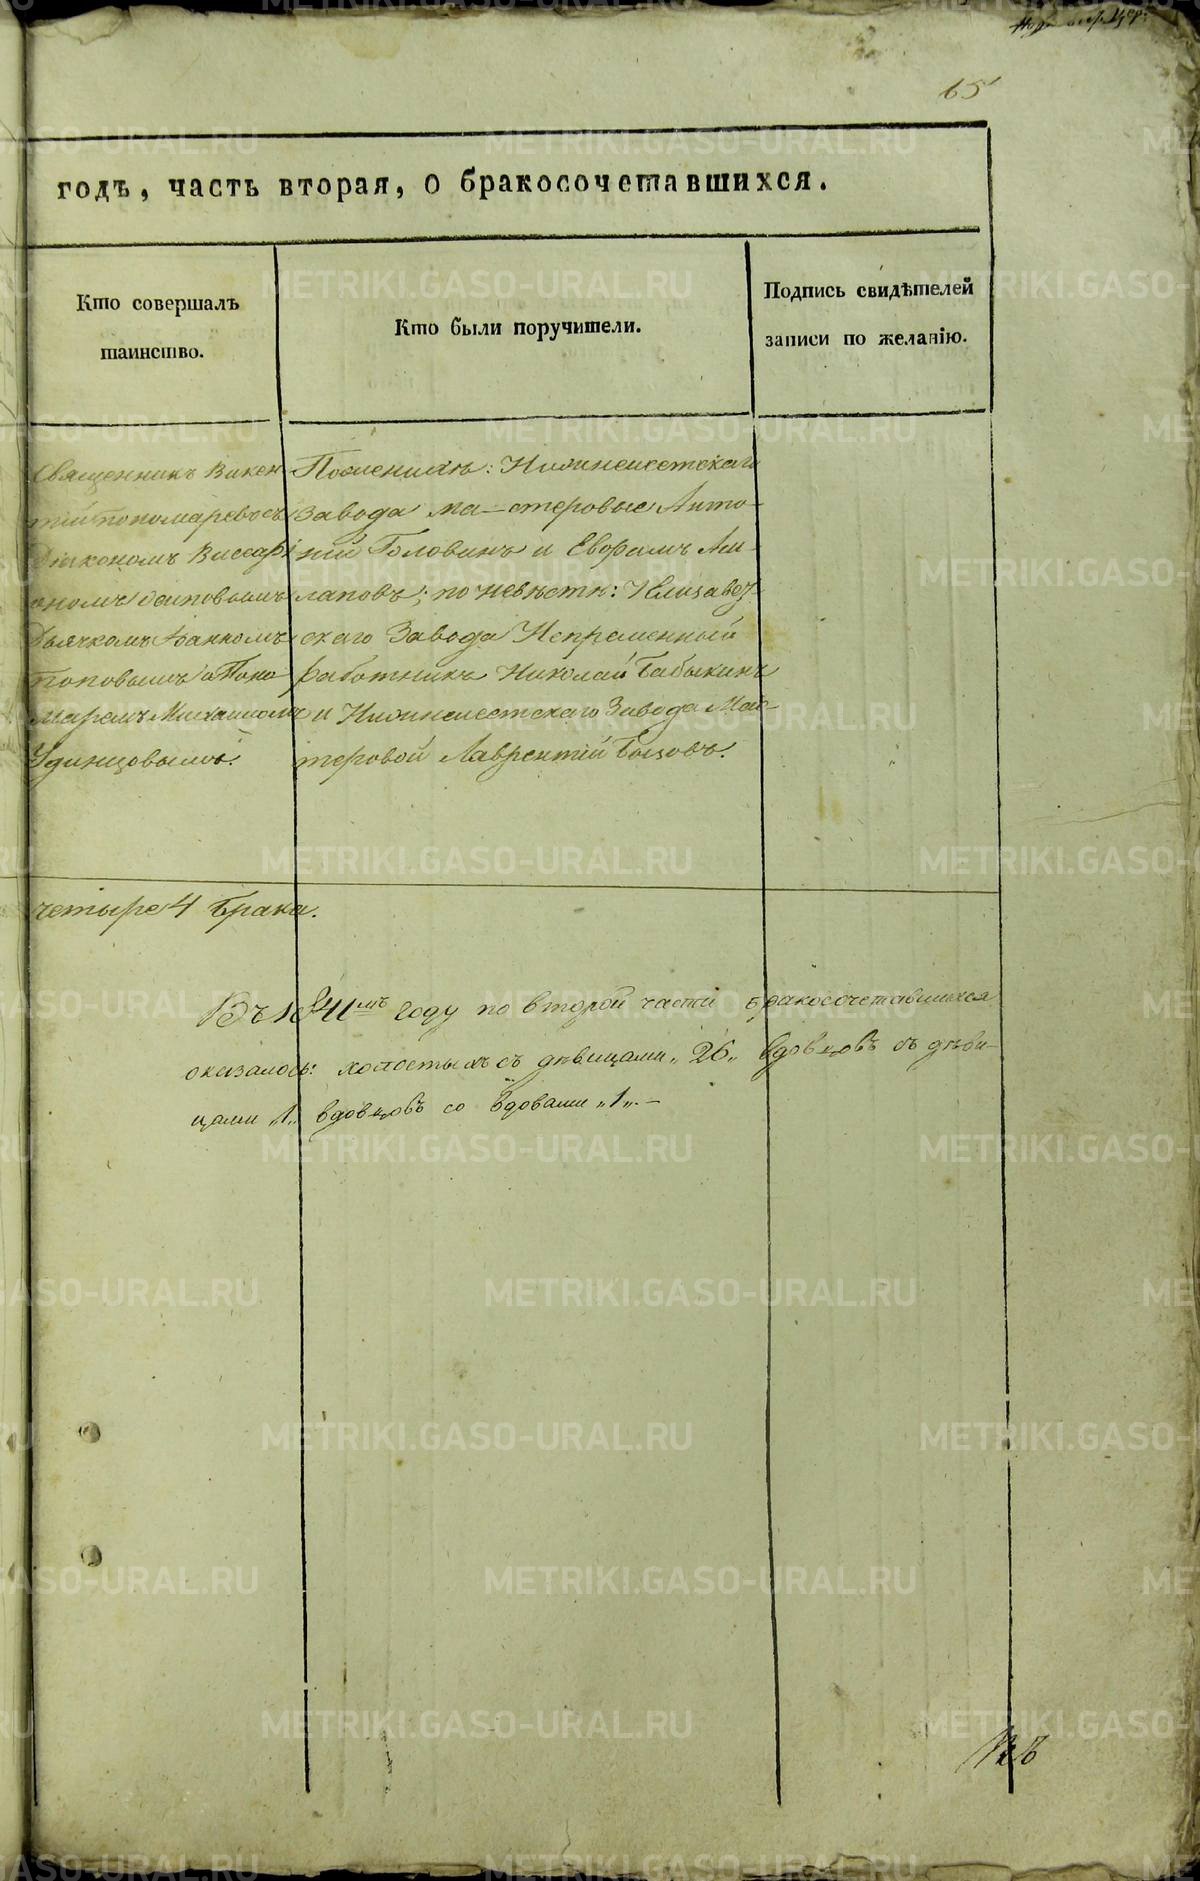 65
годъ, часть вторая, о бракосочетавшихся.
Кто совершалъ
таинство.
Кто были поручители.
Подпись свидѣтелей
записи по желанію.
Священникъ Викен
тій Пономаревъ съ
Діакономъ Виссарі
ономъ Осиповымъ
Дьячкомъ Іоанномъ
Поповымъ и Поно
маремъ Михаиломъ
Удинцовымъ.
По женихѣ: Нижнеисетскаго
Завода ма-стеровые Анто-
ній Головинъ и Евфремъ
лаповъ; по невѣстѣ: Елизавет
скаго Завода Непременный
работникъ Николай Бабыкинъ
и Нижнеисетскаго Завода Мас-
теровой Лаврентій
четыре 4 брака.
Въ 1841мъ году по второй части бракосочетавшихся
оказалось: холостыхъ съ дѣвицами „26„ вдовцовъ съ дѣви-
цами „1„ вдовцовъ со вдовами „1„. —
METRIKI.GASO-URAL.RU